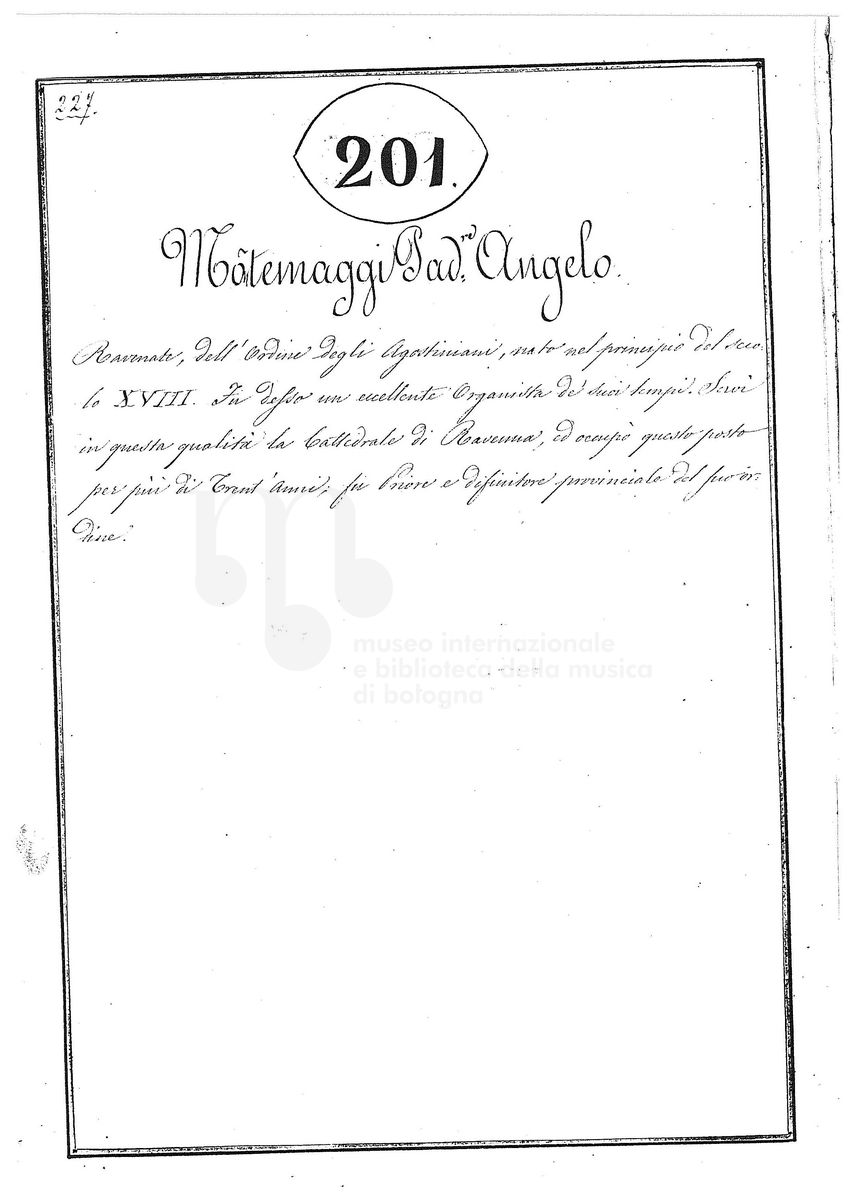 227.
201.
Mõtemaggi Pad.re Angelo.
Ravenate, dell'Ordine degli Agostiniani, nato nel principio del seco-
lo XVIII. Fu desso un eccellente Organista de' suoi tempi. Servì
in questa qualità la Cattedrale di Ravenna, ed occupò questo posto
per più di Trent'Anni; fu Priore e difinitore provinciale del suo or-
dine.
museo internazionale
e biblioteca della musica
di bologna